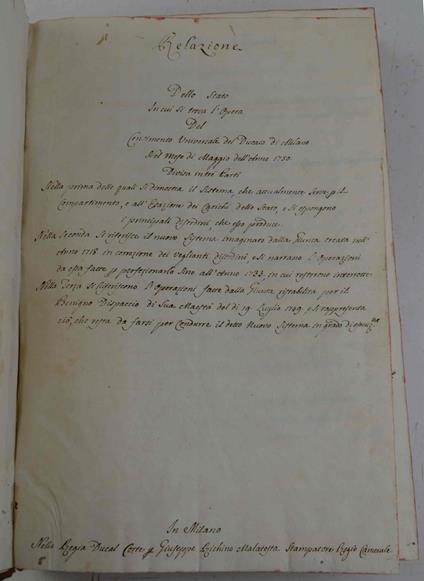 Relazione
Dello Stato
In cui si trova l'Opera
Del
Censimento Universale del Ducato di Milano
Nel Mese di Maggio dell'Anno 1750.
Divisa in tre Parti
Nella prima delle quali si dimostra il Sistema, che attualmente serve pel
Compartimento, e all'Esazione dei Carichi dello Stato, e si espongono
i principali disordini, che esso produce.
Nella Seconda si riferisce il nuovo Sistema imaginato dalla Giunta creata nell'
Anno 1718. in correzione dei Veglianti disordini, si narrano l'Operazioni
da essa fatte p perfezionarlo sino all'Anno 1733. in cui restarono interrotte.
Nella Terza si riferiscono l'Operazioni fatte dalla Giunta ristabilita per il
Benigno Dispaccio di Sua Maestà del dì 19. Luglio 1749. e si rappresenta
ciò, che resta da farsi per Condurre il detto Nuovo Sistema in grado di
In Milano
Nella Regia Ducal Corte p Giuseppe Richino Malatesta Stampatore Regio Camerale